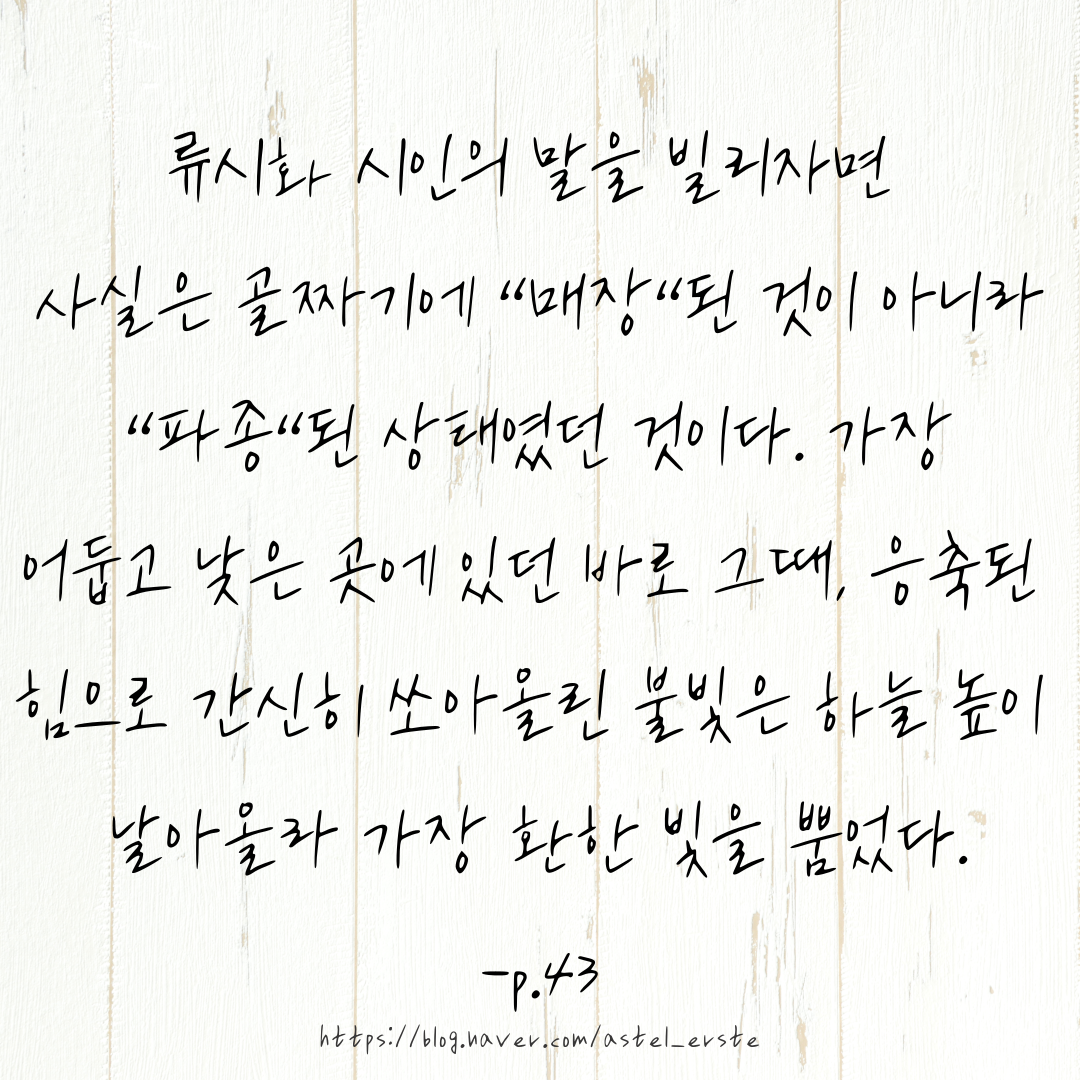 류시화 시인의 말을 빌리자면
사실은 골짜기에 “매장“된 것이 아니라
“파종“된 상태였던 것이다. 가장
어둡고 낮은 곳에 있던 바로 그때, 응축된
힘으로 간신히 쏘아올린 불빛은 하늘 높이
날아올라 가장 환한 빛을 뿜었다.
-p.43
https://blog.naver.com/astel_erste